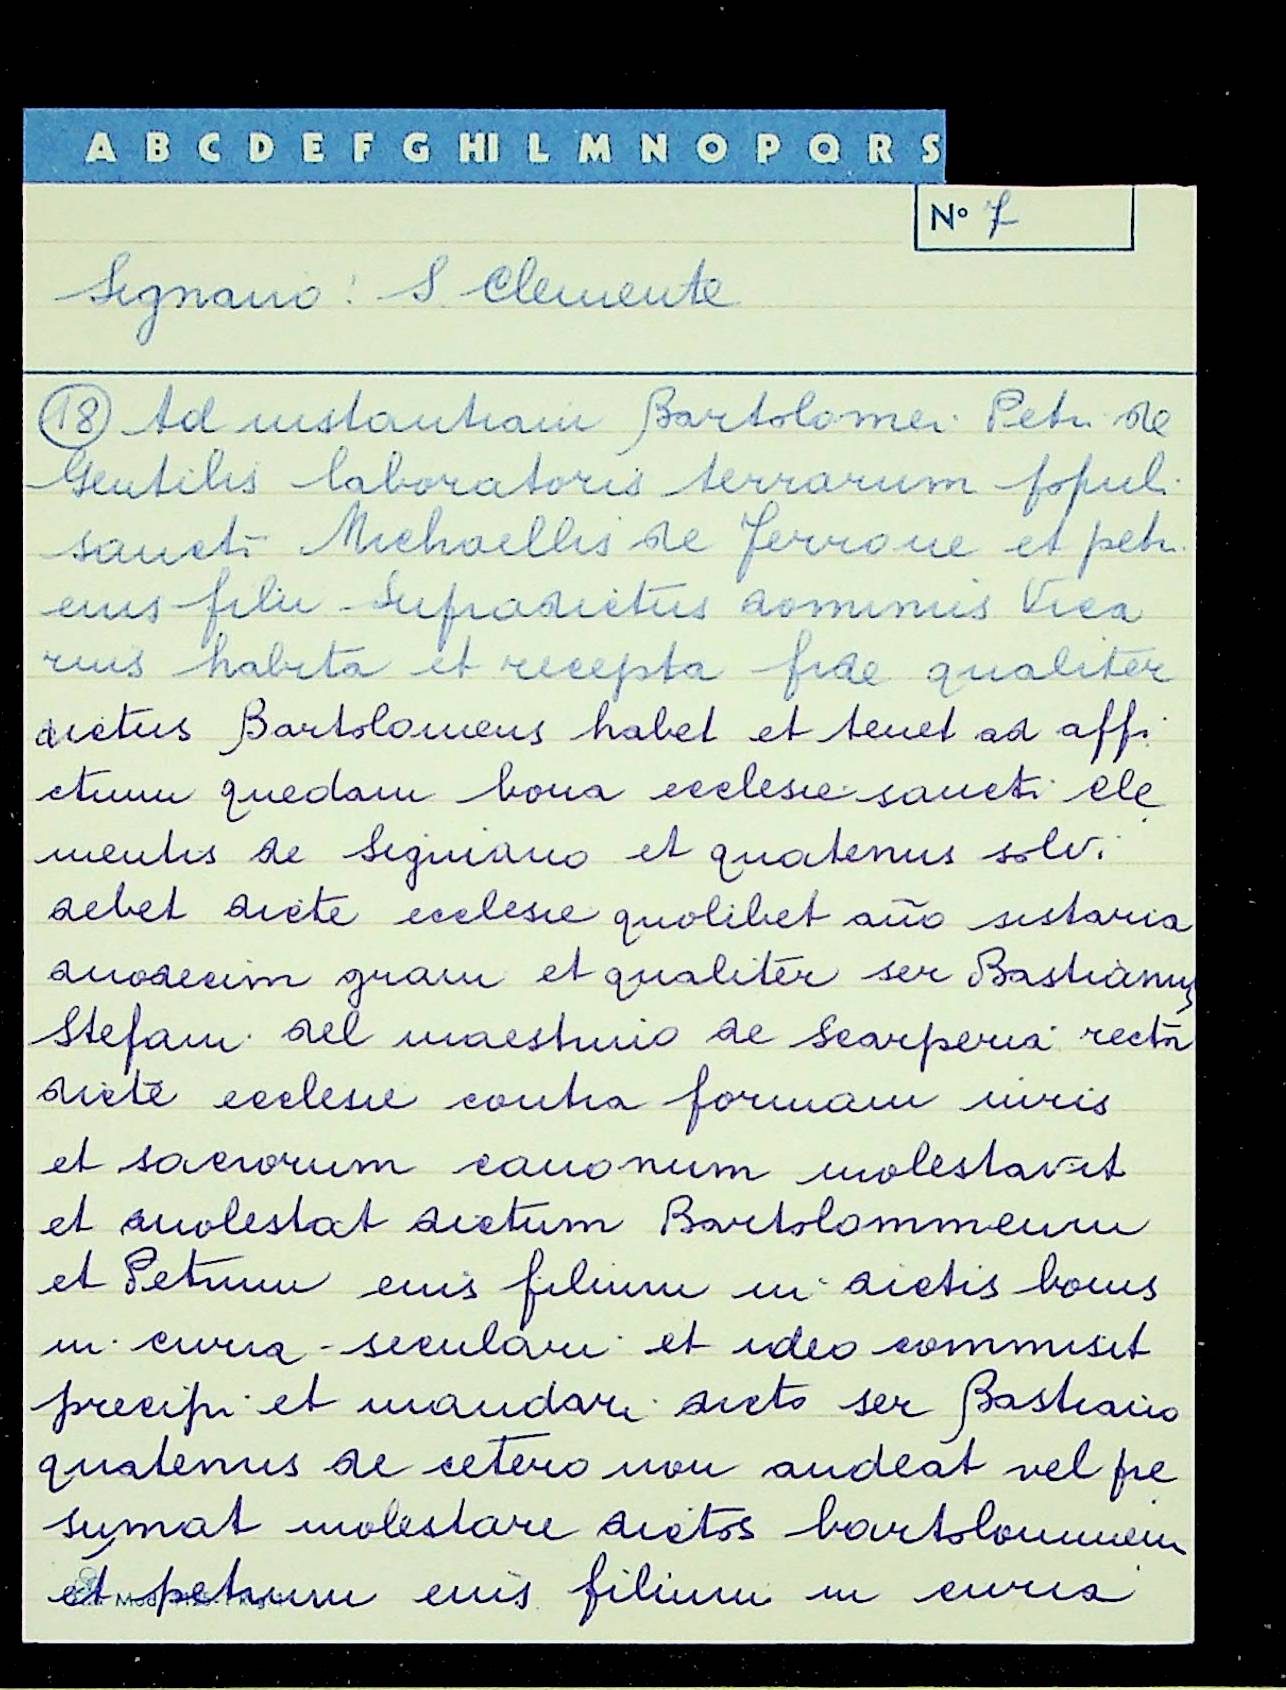 A B C D E F G HI L M N O P Q R S
N° 7
Signano: S. Clemente
(18) Ad instantiam Bartolomei Petri de
Gentilis laboratoris terrarum populi
sancti Michaellis de Ferrone et petri
eius filii Supradictus dominus Vica
rius habita et recepta fide qualiter
dictus Bartolomeus habet et tenet ad affi
ctum quedam bona ecclesie sancti Cle
mentis de Signiano et quatenus solvi
debet dicte ecclesie quolibet año sistaria
duodecim grani et qualiter ser Bastianus
Stefani del maestruio de Scarperia rector
dicte ecclesie contra formam iuris
et sacrorum canonum molestavit
et molestat dictum Bartolommeum
et Petrum eius filium in dictis bonis
in curia seculari et ideo commisit
precipi et mandari dicto ser Bastiano
quatenus de cetero non audeat vel pre
sumat molestare dictos bartolommeum
et petrum eius filium in curia